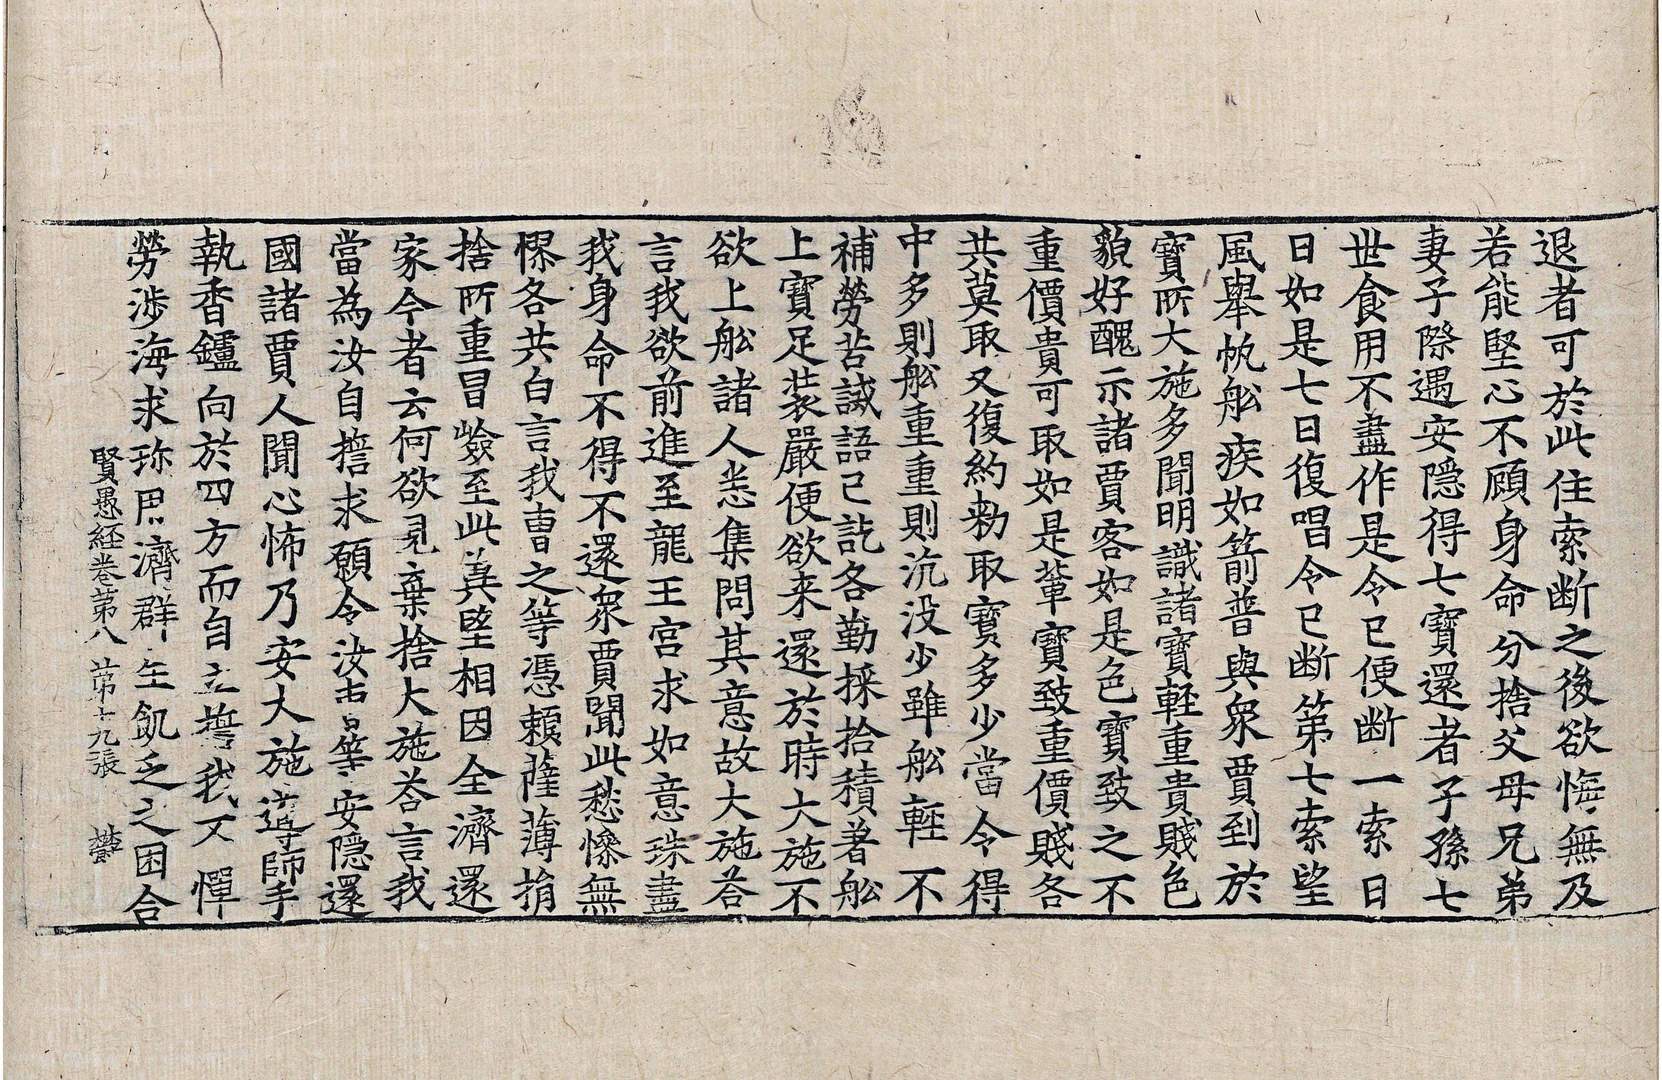 退者可於此住索断之後欲悔無及
若能堅心不顧身命分捨父母兄弟
妻子際遇安隱得七寶還者子孫七
世食用不盡作是令已便断一索日
日如是七日復唱令已断第七索望
風舉帆舩疾如箭普與衆賈到於
寶所大施多聞明識諸寶輕重貴賤色
貌好醜示諸賈客如是色寶致之不
重價貴可取如是輩寶致重價賤各
共莫取又復約勑取寶多少當令得
中多則舩重重則沉没少雖舩輕不
補勞苦誡語已訖各勤採拾積著舩
上寶足裝嚴便欲来還於時大施不
欲上舩諸人悉集問其意故大施荅
言我欲前進至龍王宮求如意珠盡
我身命不得不還衆賈聞此愁慘無
憀各共白言我曹之等憑賴薩薄捐
捨所重冒嶮至此兾望相因全濟還
家今者云何欲見棄捨大施荅言我
當為汝自擔求願令汝曹等安隱還
國諸賈人聞心怖乃安大施導師手
執香鑪向於四方而自立誓我不憚
勞涉海求珎思濟群生飢乏之困合
賢愚經卷第八 第十九張 欝